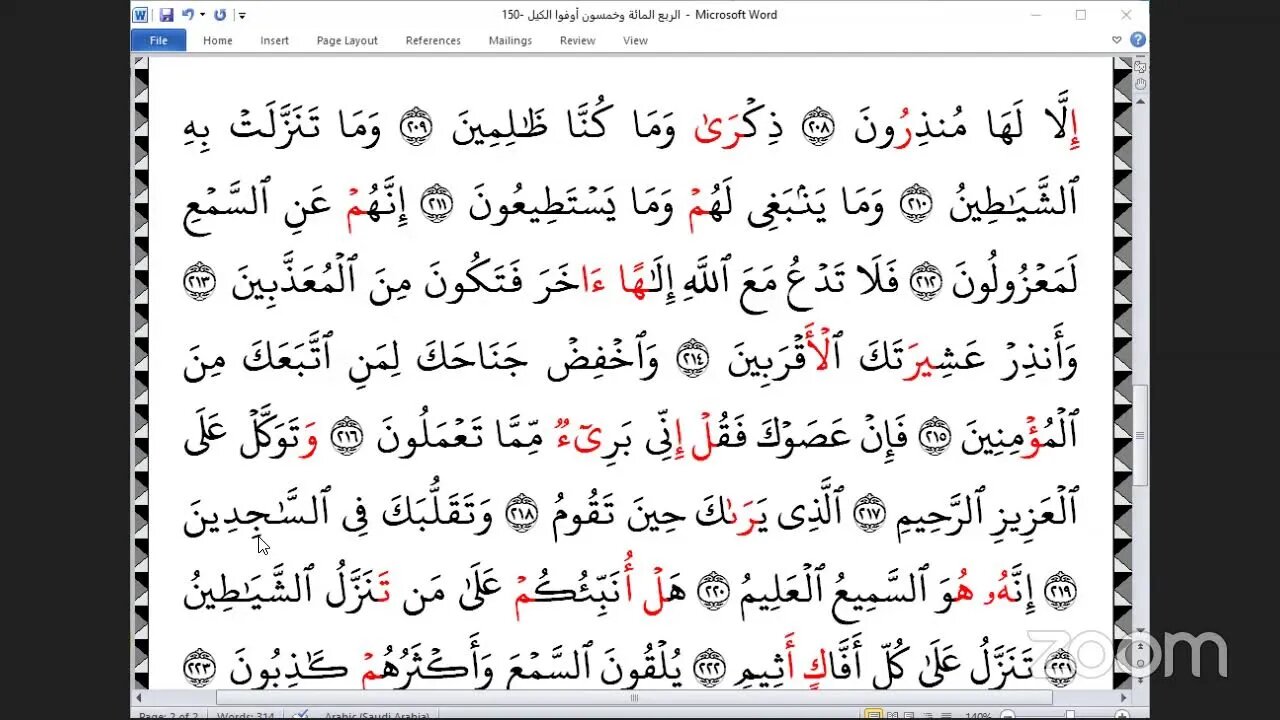 الربع المائة وخمسون أوفوا الكيل -150 - Microsoft Word
File Home Insert Page Layout References Mailings Review View
إِلَّا لَهَا مُنذِرُونَ ٢٠٨ ذِكْرَىٰ وَمَا كُنَّا ظَٰلِمِينَ ٢٠٩ وَمَا تَنَزَّلَتْ بِهِ
ٱلشَّيَٰطِينُ ٢١٠ وَمَا يَنۢبَغِى لَهُمْ وَمَا يَسْتَطِيعُونَ ٢١١ إِنَّهُمْ عَنِ ٱلسَّمْعِ
لَمَعْزُولُونَ ٢١٢ فَلَا تَدْعُ مَعَ ٱللَّهِ إِلَٰهًا ءَاخَرَ فَتَكُونَ مِنَ ٱلْمُعَذَّبِينَ ٢١٣
وَأَنذِرْ عَشِيرَتَكَ ٱلْأَقْرَبِينَ ٢١٤ وَٱخْفِضْ جَنَاحَكَ لِمَنِ ٱتَّبَعَكَ مِنَ
ٱلْمُؤْمِنِينَ ٢١٥ فَإِنْ عَصَوْكَ فَقُلْ إِنِّى بَرِىٓءٌ مِّمَّا تَعْمَلُونَ ٢١٦ وَتَوَكَّلْ عَلَى
ٱلْعَزِيزِ ٱلرَّحِيمِ ٢١٧ ٱلَّذِى يَرَىٰكَ حِينَ تَقُومُ ٢١٨ وَتَقَلُّبَكَ فِى ٱلسَّٰجِدِينَ
٢١٩ إِنَّهُۥ هُوَ ٱلسَّمِيعُ ٱلْعَلِيمُ ٢٢٠ هَلْ أُنَبِّئُكُمْ عَلَىٰ مَن تَنَزَّلُ ٱلشَّيَٰطِينُ
٢٢١ تَنَزَّلُ عَلَىٰ كُلِّ أَفَّاكٍ أَثِيمٍ ٢٢٢ يُلْقُونَ ٱلسَّمْعَ وَأَكْثَرُهُمْ كَٰذِبُونَ ٢٢٣
zoom
Page: 2 of 2 Words: 314 Arabic (Saudi Arabia) 140%